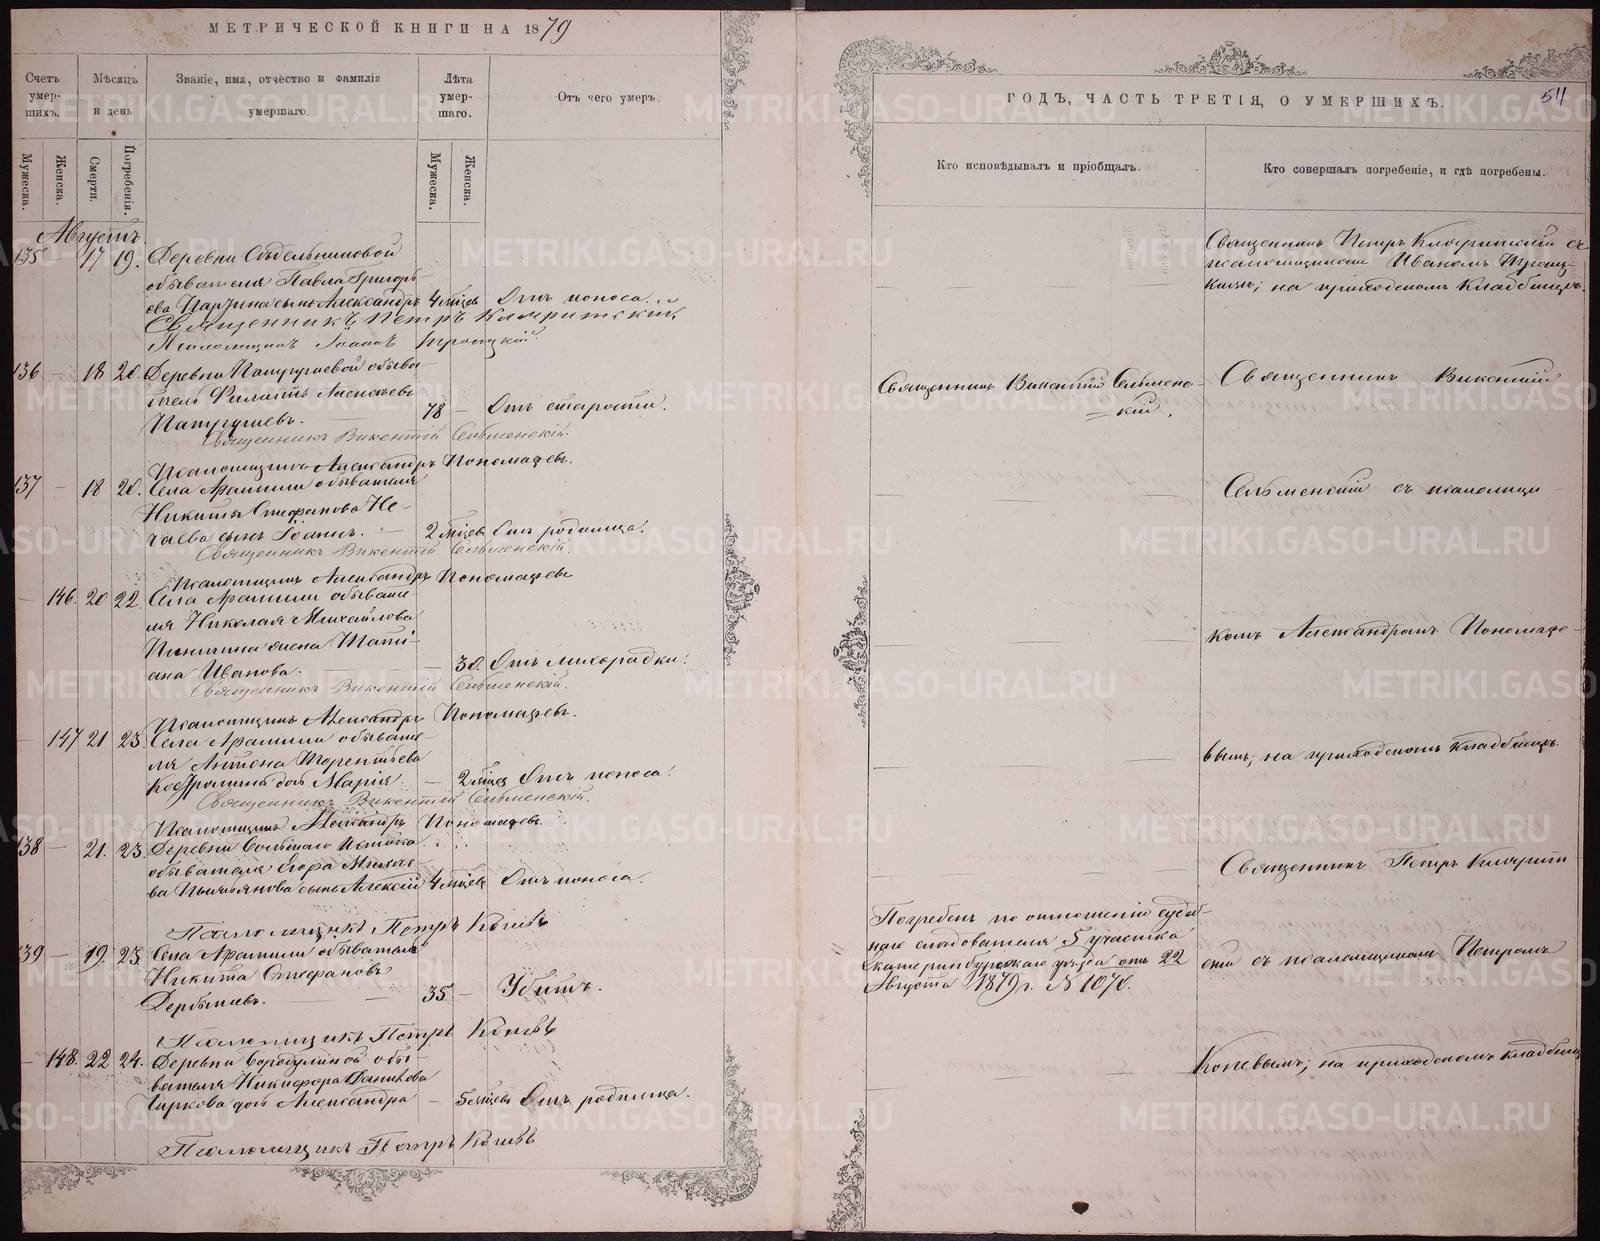 МЕТРИЧЕСКОЙ КНИГИ НА 1879
Счетъ умер-шихъ.
Мѣсяцъ и день
Званіе, имя, отчество и фамилія умершаго.
Лѣта умер-шаго.
Отъ чего умеръ.
Мужеска.
Женска.
Смерти.
Погребенія.
Мужеска.
Женска.
Августъ.
135 17 19. Деревни
обывателя Павла Григорь-
ева сынъ Александръ 4 мѣсяц. Отъ поноса.
Священникъ Петръ
Псаломщикъ Іоаннъ Троицкій.
136 — 18 20. Деревни обыва-
тель Филиппъ Алексѣевъ
78 — Отъ старости.
Священникъ Викентій Сельменскій.
Псаломщикъ Александръ Пономаревъ.
137 — 18 20. Села Арамили обывателя
Никиты Стефанова Не-
чаева сынъ Іоаннъ. — 2 мѣсяц. Отъ родимца.
Священникъ Викентій Сельменскій.
Псаломщикъ Александръ Пономаревъ
— 146. 20 22. Села Арамили обывате-
ля Николая Михайлова
жена Татіа-
ана Иванова. — 30. Отъ лихорадки.
Священникъ Викентій Сельменскій.
Псаломщикъ Александръ Пономаревъ.
— 147 21 23. Села Арамили обывате-
ля Антона Терентьева
дочь Марія. — 2 мѣсяц. Отъ поноса.
Священникъ Викентій Сельменскій.
Псаломщикъ Александръ Пономаревъ.
138 — 21. 23. Деревни Большаго Истока
обывателя Егора
сынъ Алексѣй 4 мѣсяц. Отъ поноса.
Псаломщикъ Петръ Коневъ
139 — 19. 23. Села Арамили обыватель
Никита Стефановъ
Дербышевъ. — 35 — Убитъ.
Псаломщикъ Петръ Коневъ
— 148. 22 24. Деревни Бородулиной обы-
вателя Никифора Данилова
Чиркова дочь Александра — 5 мѣсяц. Отъ родимца.
Псаломщикъ Петръ Коневъ
ГОДЪ, ЧАСТЬ ТРЕТІЯ, О УМЕРШИХЪ.
54
Кто исповѣдывалъ и пріобщалъ.
Кто совершалъ погребеніе, и гдѣ погребены.
Священникъ Петръ съ
псаломщикомъ Иваномъ Троиц-
кимъ; на приходскомъ кладбищѣ.
Священникъ Викентій Сельменс-
кій.
Священникъ Викентій
Сельменскій съ псаломщи-
комъ Александромъ Пономаре-
вымъ; на приходскомъ кладбищѣ.
Священникъ Петръ
съ псаломщикомъ Петромъ
Коневымъ; на приходскомъ кладбищѣ
Погребенъ по отношенію судеб-
наго слѣдователя 5 участка
Екатеринбургскаго уѣзда отъ 22
Августа 1879 г. № 1070.
METRIKI.GASO-URAL.RU